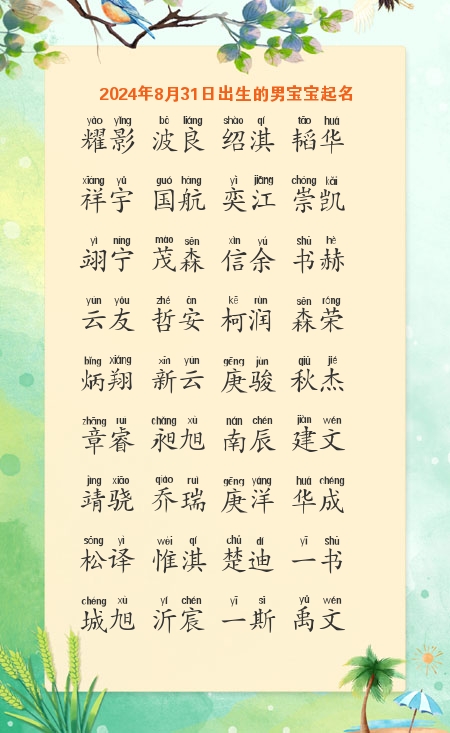 2024年8月31日出生的男宝宝起名
yào yǐng bō liáng shào qí tāo huá
耀影 波良 绍淇 韬华
xiáng yǔ guó háng yì jiāng chóng kǎi
祥宇 国航 奕江 崇凯
yì níng mào sēn xìn yú shū hè
翊宁 茂森 信余 书赫
yún yǒu zhé ān kē rùn sēn róng
云友 哲安 柯润 森荣
bǐng xiáng xīn yún gēng jùn qiū jié
炳翔 新云 庚骏 秋杰
zhāng ruì chǎng xù nán chén jiàn wén
章睿 昶旭 南辰 建文
jìng xiāo qiáo ruì gēng yáng huá chéng
靖骁 乔瑞 庚洋 华成
sōng yì wéi qí chǔ dí yī shū
松译 惟淇 楚迪 一书
chéng xù yí chén yī sī yǔ wén
城旭 沂宸 一斯 禹文